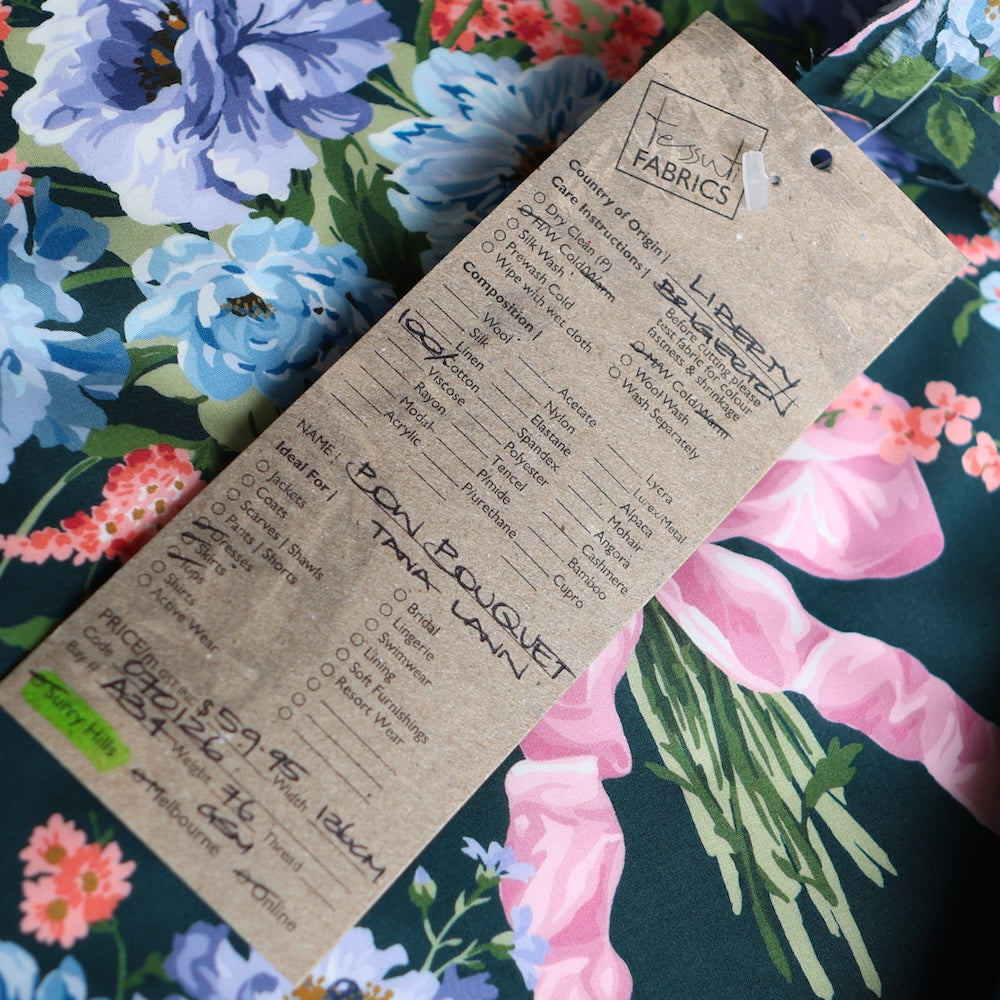 tessuti
FABRICS
Country of Origin | LIBERTY
Care Instructions | Before cutting please
test fabric for colour
fastness & shrinkage
Dry Clean (P)
H/W Cold/Warm
M/W Cold/Warm
Silk Wash
Wool Wash
Prewash Cold
Wash Separately
Wipe with wet cloth
Composition |
Wool
Acetate
Lycra
Silk
Nylon
Lurex/Metal
Linen
Elastane
Alpaca
100% Cotton
Spandex
Mohair
Viscose
Polyester
Angora
Rayon
Tencel
Cashmere
Modal
P/mide
Bamboo
Acrylic
P/urethane
Cupro
NAME | BON BOUQUET
TANA LAWN
Ideal For |
Jackets
Bridal
Coats
Lingerie
Scarves | Shawls
Swimwear
Pants | Shorts
Lining
Dresses
Soft Furnishings
Skirts
Resort Wear
Tops
Shirts
Active Wear
PRICE/m GST INC $59.95
Code 070126 Width 136CM
Bay # A34 Weight 76 GSM Thread
Surry Hills
Melbourne
Online